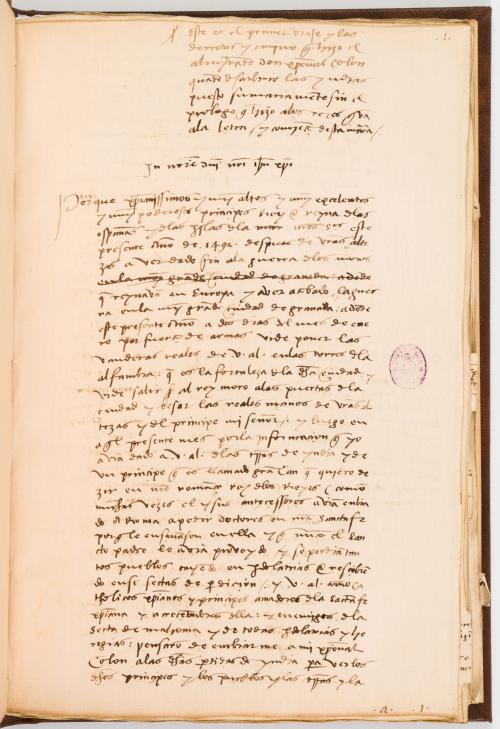 este es el primer viaje y las
derrotas y camino q̃ hizo el
almirãte don xp̃oual Colon
quãdo descubrio las yndias
puesto sumariamẽte sin el
prologo q̃ hizo a los reyes q̃ va
a la letra / y comiẽça desta manera /
.1.
In nõie dñi nr̃i ihũ xp̃i
Porque xp̃ianissimos y muy altos y muy excelentes
y muy poderosos principes Rey e reyna dlas
españas y dlas yslas dla mar nr̃os sres este
presente Año de .1492. despues de vr̃as alte
zas aver dado fin a la guerra dlos moros
en la muy grade ciudad de granada: adode
q̃ reynavã en Europa y aver acabado la guer
ra en la muy grãde ciudad de granada: adode
este presente Año a dos dias del mes de ene
ro por fuerça de armas vide poner las
vanderas reales de v. al. en las torres dla
alfambra: q̃ es la fortaleza dla dha ciudad: y
vide salir al rey moro a las puertas dla
ciudad y besar las reales manos de vr̃as al
tezas y del principe mi señor: y luego en
aql̃ presente mes por la informaciõ q̃ yo
avia dado a v. al. dlas tr̃ras de yndia y de
vn principe q̃ es llamado grã Can q̃ quiere de
zir en nr̃o romançe rey dlos reyes / como
muchas vezes el y sus antecessores aviã enbia
do a Roma a pedir doctores en nr̃a sancta fe
porq̃ le enseñasen en ella y q̃ nũca el san
cto padre le avia proveydo y se perdiã tan
tos pueblos cayedo en ydolatrias e resçibiẽ
do en si sectas de p̱diciõ / y v. al. como ca
tholicos xp̃ianos y principes amadores dla sancta fe
xp̃iana y acreçẽtadores dlla: y enemigos dla
secta de mahoma y de todas ydolatrias y he
regias: pensarõ de enbiarme a mi xp̃oual
Colon a las dhas p̱tidas de yndia pa ver los
dhos principes y los pueblos y las tr̃ras y la
.a. .1.